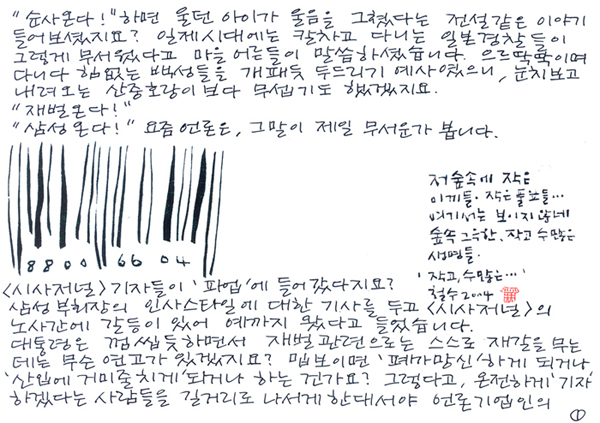 "순사온다!" 하면 울던 아이가 울음을 그쳤다는 전설같은 이야기
들어보셨지요? 일제시대에는 칼차고 다니는 일본경찰들이
그렇게 무서웠다고 마을 어른들이 말씀하셨습니다. 으르딱딱이며
다니다 힘없는 백성들을 개패듯 두드리기 예사였으니, 눈치보고
내려오는 산중호랑이보다 무섭기도 했겠지요.
"재벌온다!"
"삼성온다!" 요즘 언론은, 그말이 제일 무서운가 봅니다.
8800 6604
저 숲속에 작은
이끼들. 작은 풀꽃들...
여기서는 보이지 않네
숲속 그윽한, 작고 수많은
생명들.
'작고, 수많은...'
철수 2004
<시사저널> 기자들이 '파업'에 들어갔다지요?
삼성 부회장의 인사스타일에 대한 기사를 두고 <시사저널>의
노사간에 갈등이 있어 예까지 왔다고 들었습니다.
대통령은 껌씹듯하면서 재벌관련으로는 스스로 재갈을 무는
데는 무슨 연고가 있겠지요? 밉보이면 '패가망신'하게 되거나
'산입에 거미줄치게' 되거나 하는 건가요? 그렇다고, 온전하게 '기자'
하겠다는 사람들을 길거리로 나서게 한대서야 언론기업인의
①